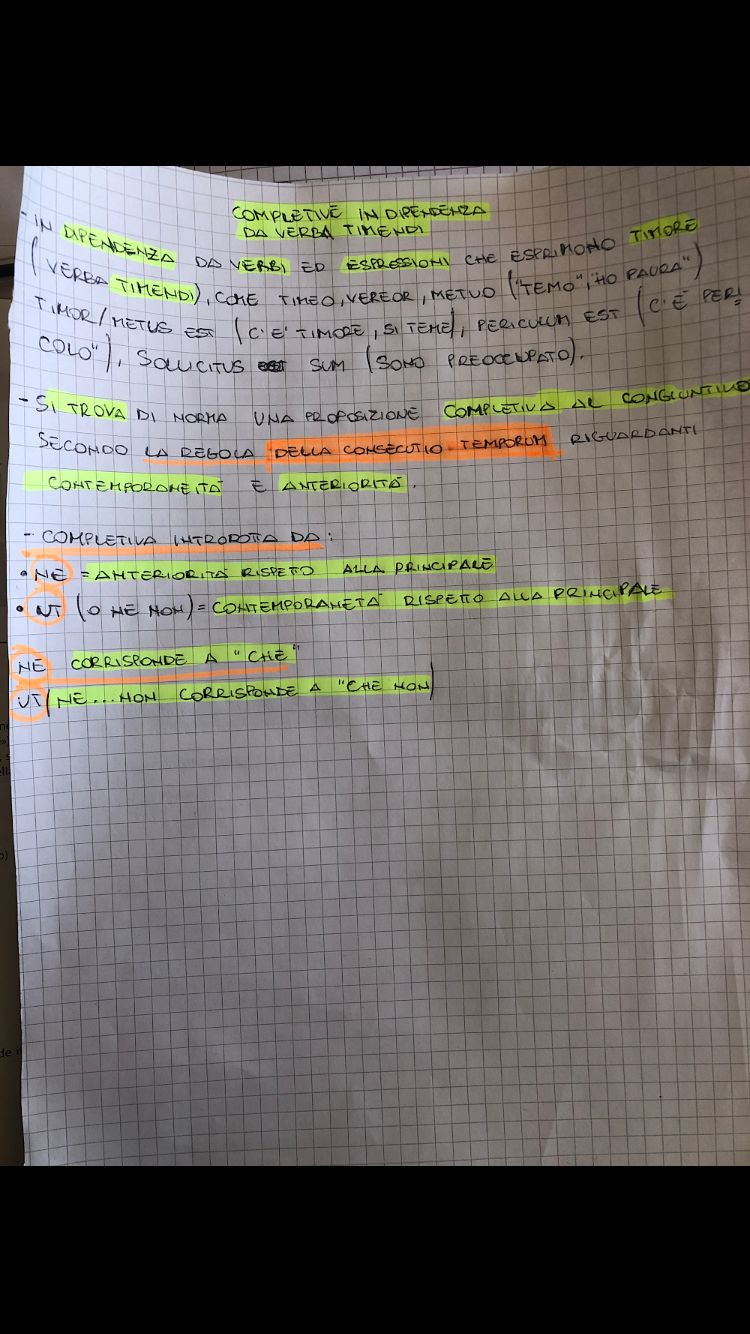 COMPLETIVE IN DIPENDENZA
DA VERBA TIMENDI
- IN DIPENDENZA DA VERBI ED ESPRESSIONI CHE ESPRIMONO TIMORE
(VERBA TIMENDI), COME TIMEO, VEREOR, METUO ("TEMO", "HO PAURA")
TIMOR/METUS EST (C'E' TIMORE, SI TEME), PERICULUM EST (C'È PERI=
COLO"), SOLLICITUS SUM (SONO PREOCCUPATO).
- SI TROVA DI NORMA UNA PROPOSIZIONE COMPLETIVA AL CONGIUNTIVO
SECONDO LA REGOLA DELLA CONSECUTIO TEMPORUM RIGUARDANTI
CONTEMPORANEITÀ E ANTERIORITÀ.
- COMPLETIVA INTRODOTTA DA:
• NE = ANTERIORITÀ RISPETTO ALLA PRINCIPALE
• UT (O NE NON) = CONTEMPORANETÀ RISPETTO ALLA PRINCIPALE
NE CORRISPONDE A "CHE"
UT (NE... NON CORRISPONDE A "CHE NON)